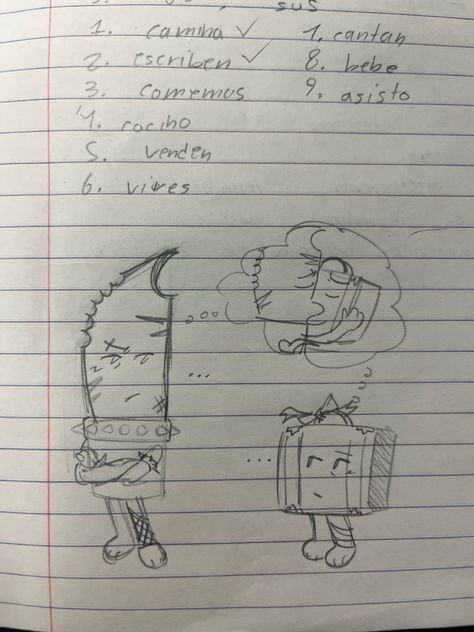 sus
1. camina ✓
2. escriben ✓
3. comemos
4. cocino
5. venden
6. vives
7. cantan
8. bebe
9. asisto
...
...